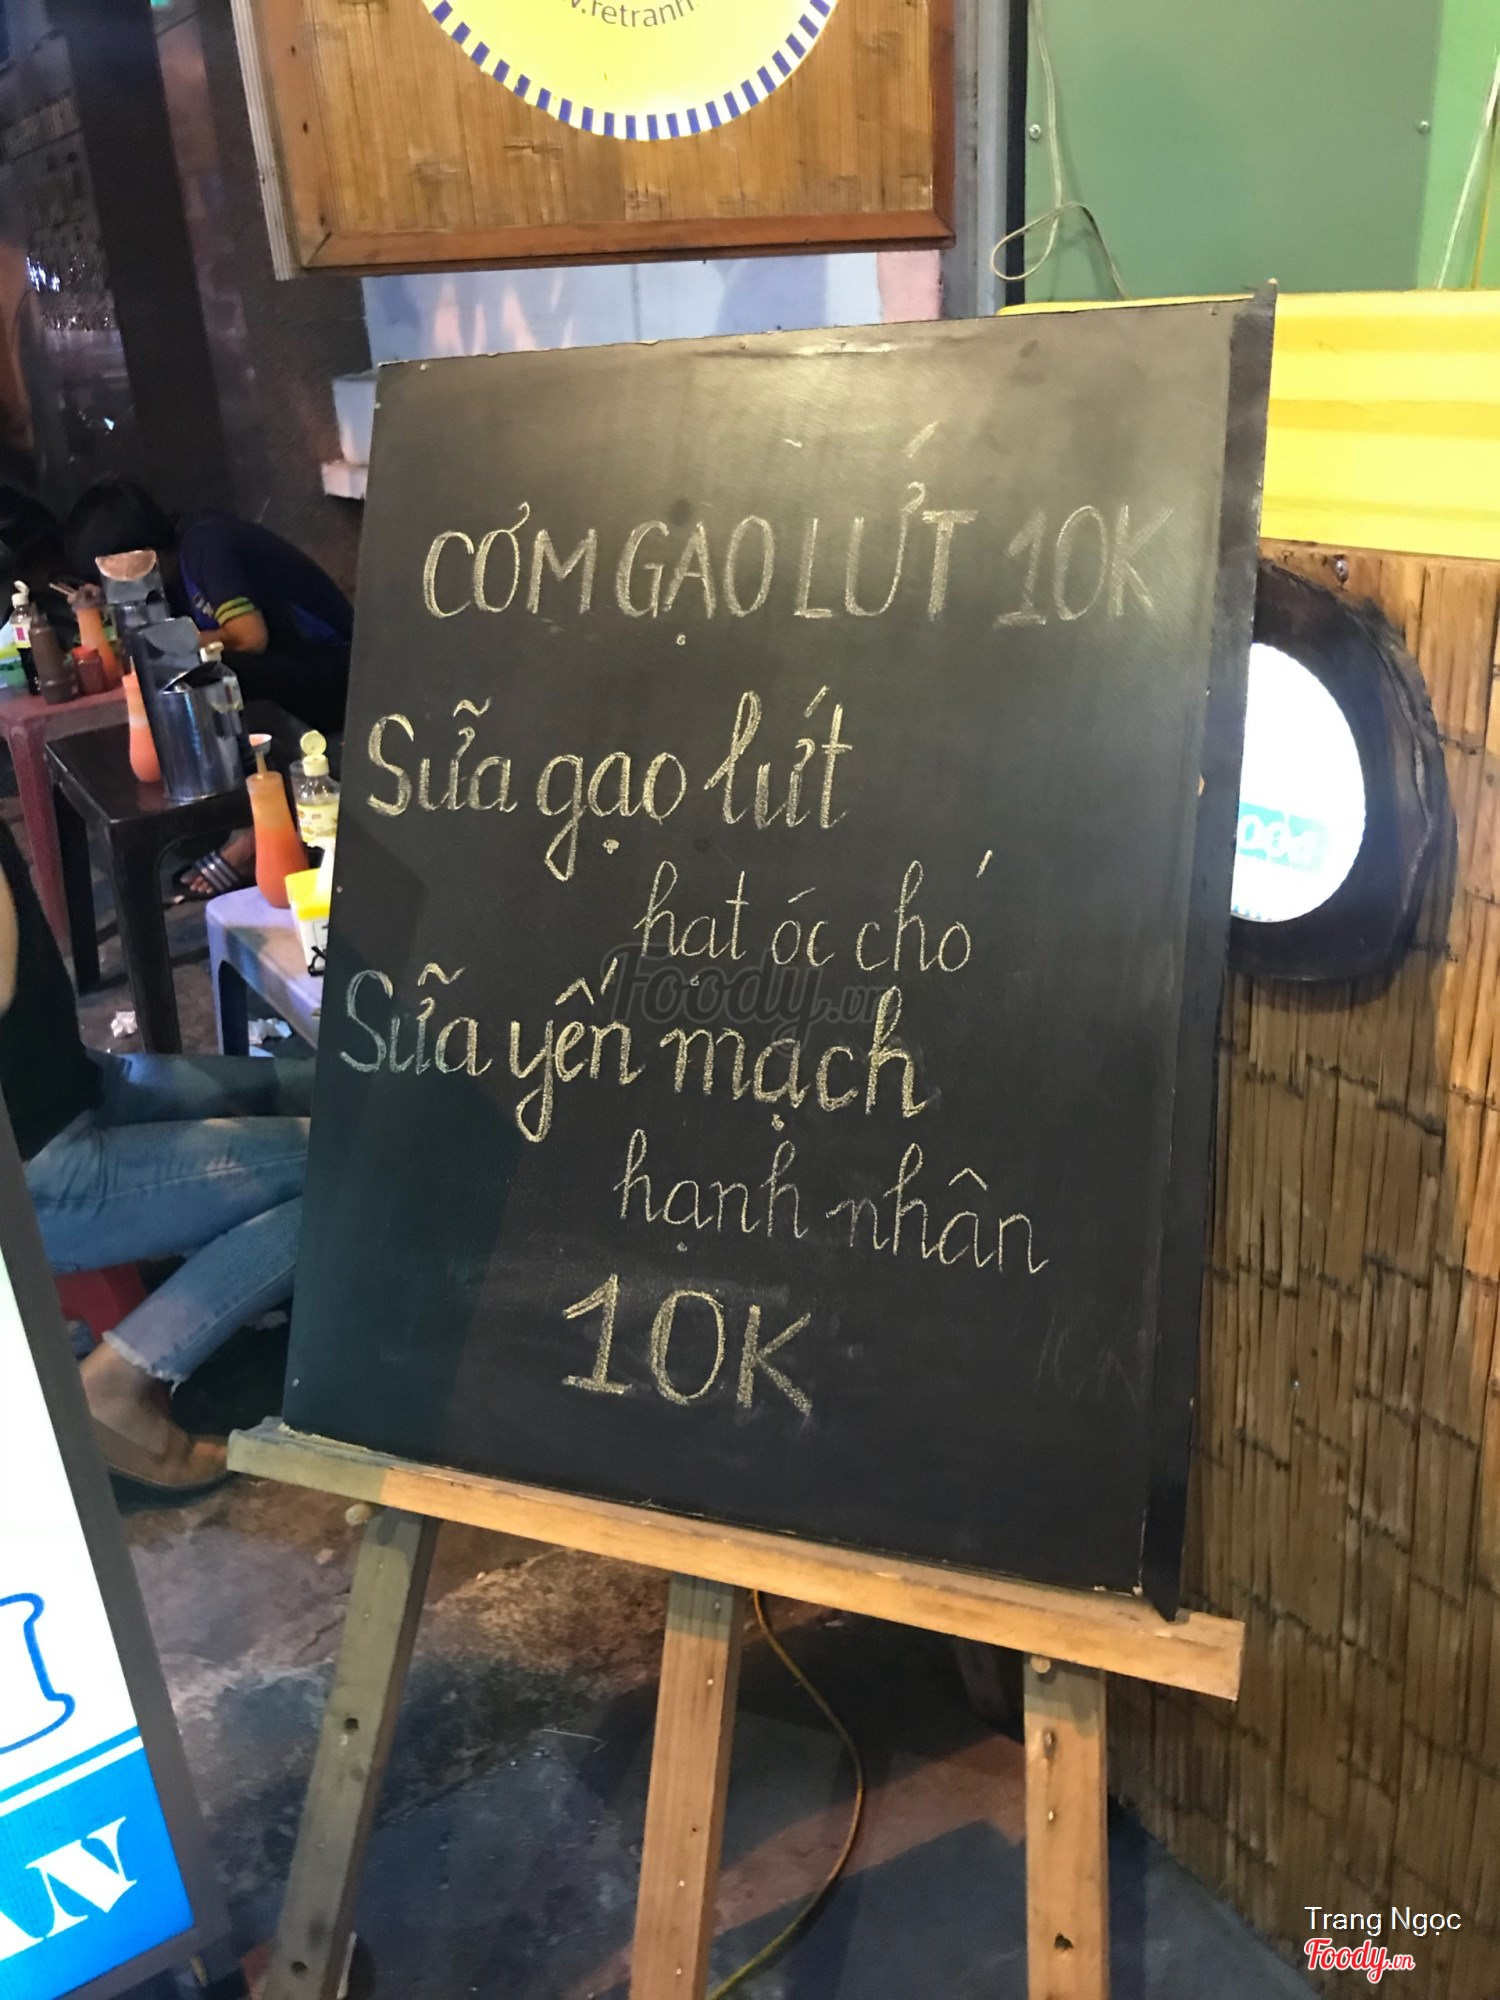 CƠM GẠO LỨT 10K
Sữa gạo lứt
hạt óc chó
Sữa yến mạch
hạnh nhân
10K
Foody.vn
Trang Ngọc
Foody.vn